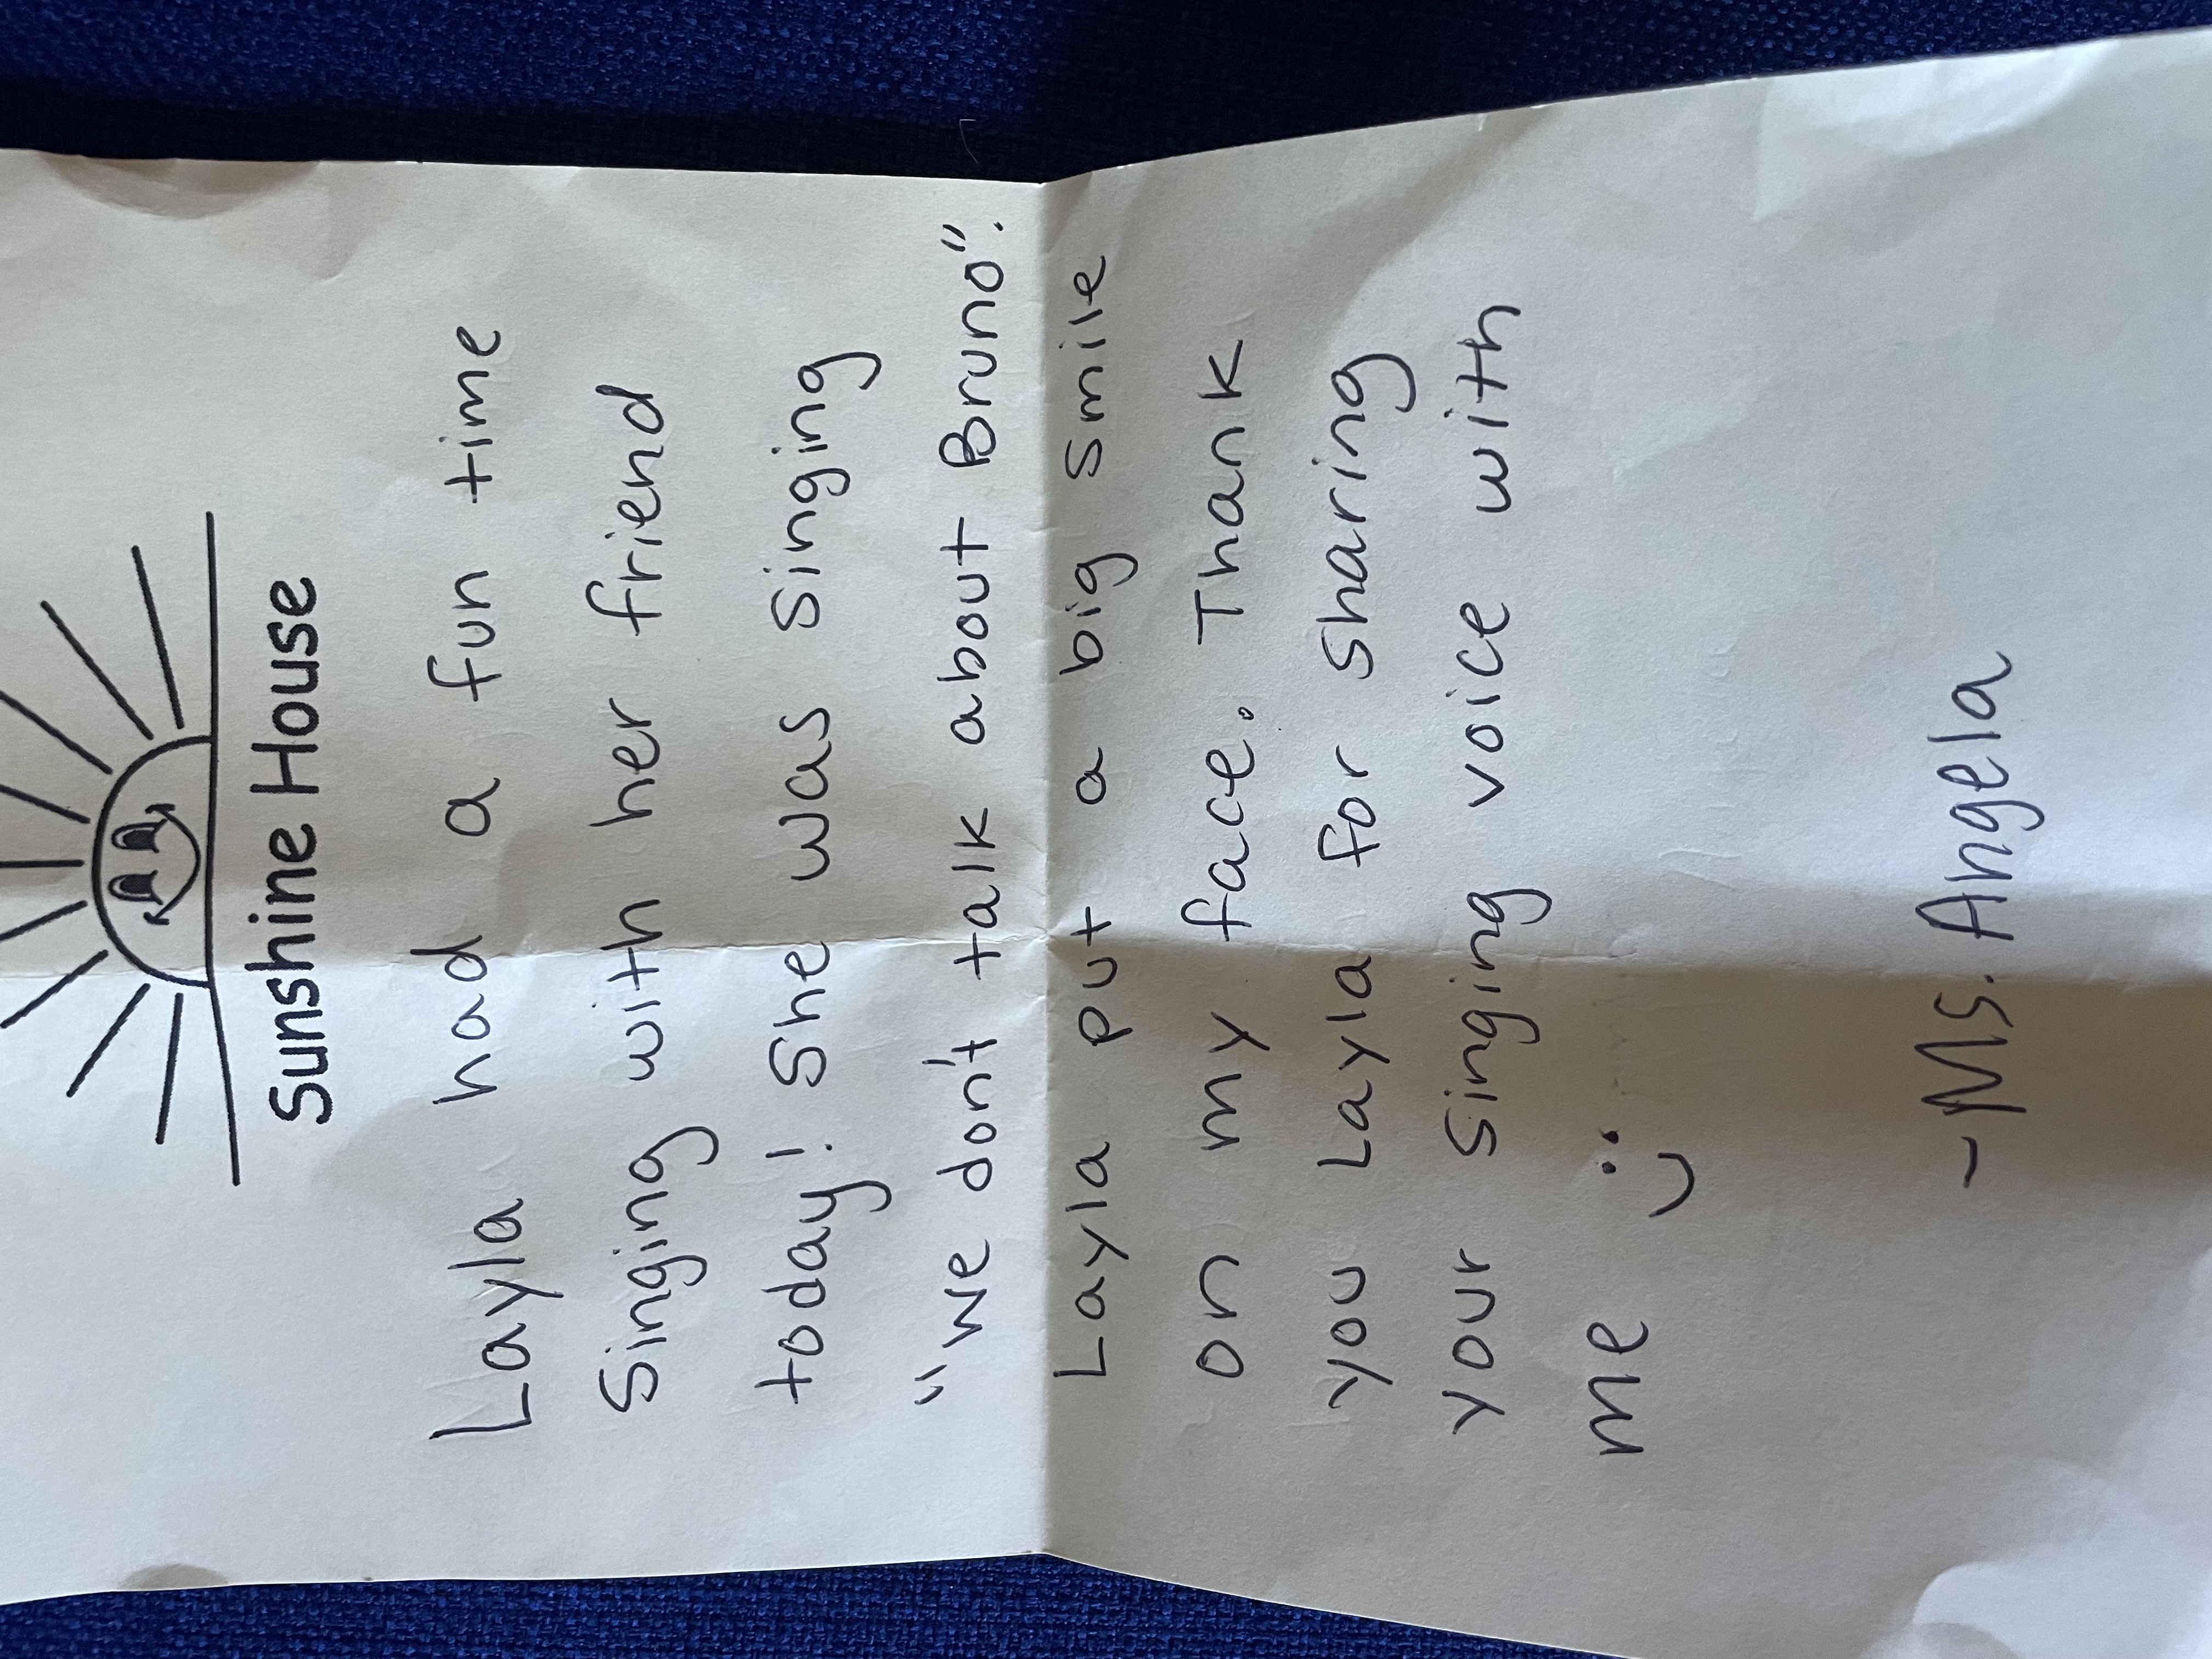 Sunshine House
Layla had a fun time
Singing with her friend
today! She was singing
"We don't talk about Bruno".
Layla put a big smile
on my face. Thank
you Layla for sharing
your singing voice with
me :)
-Ms. Angela